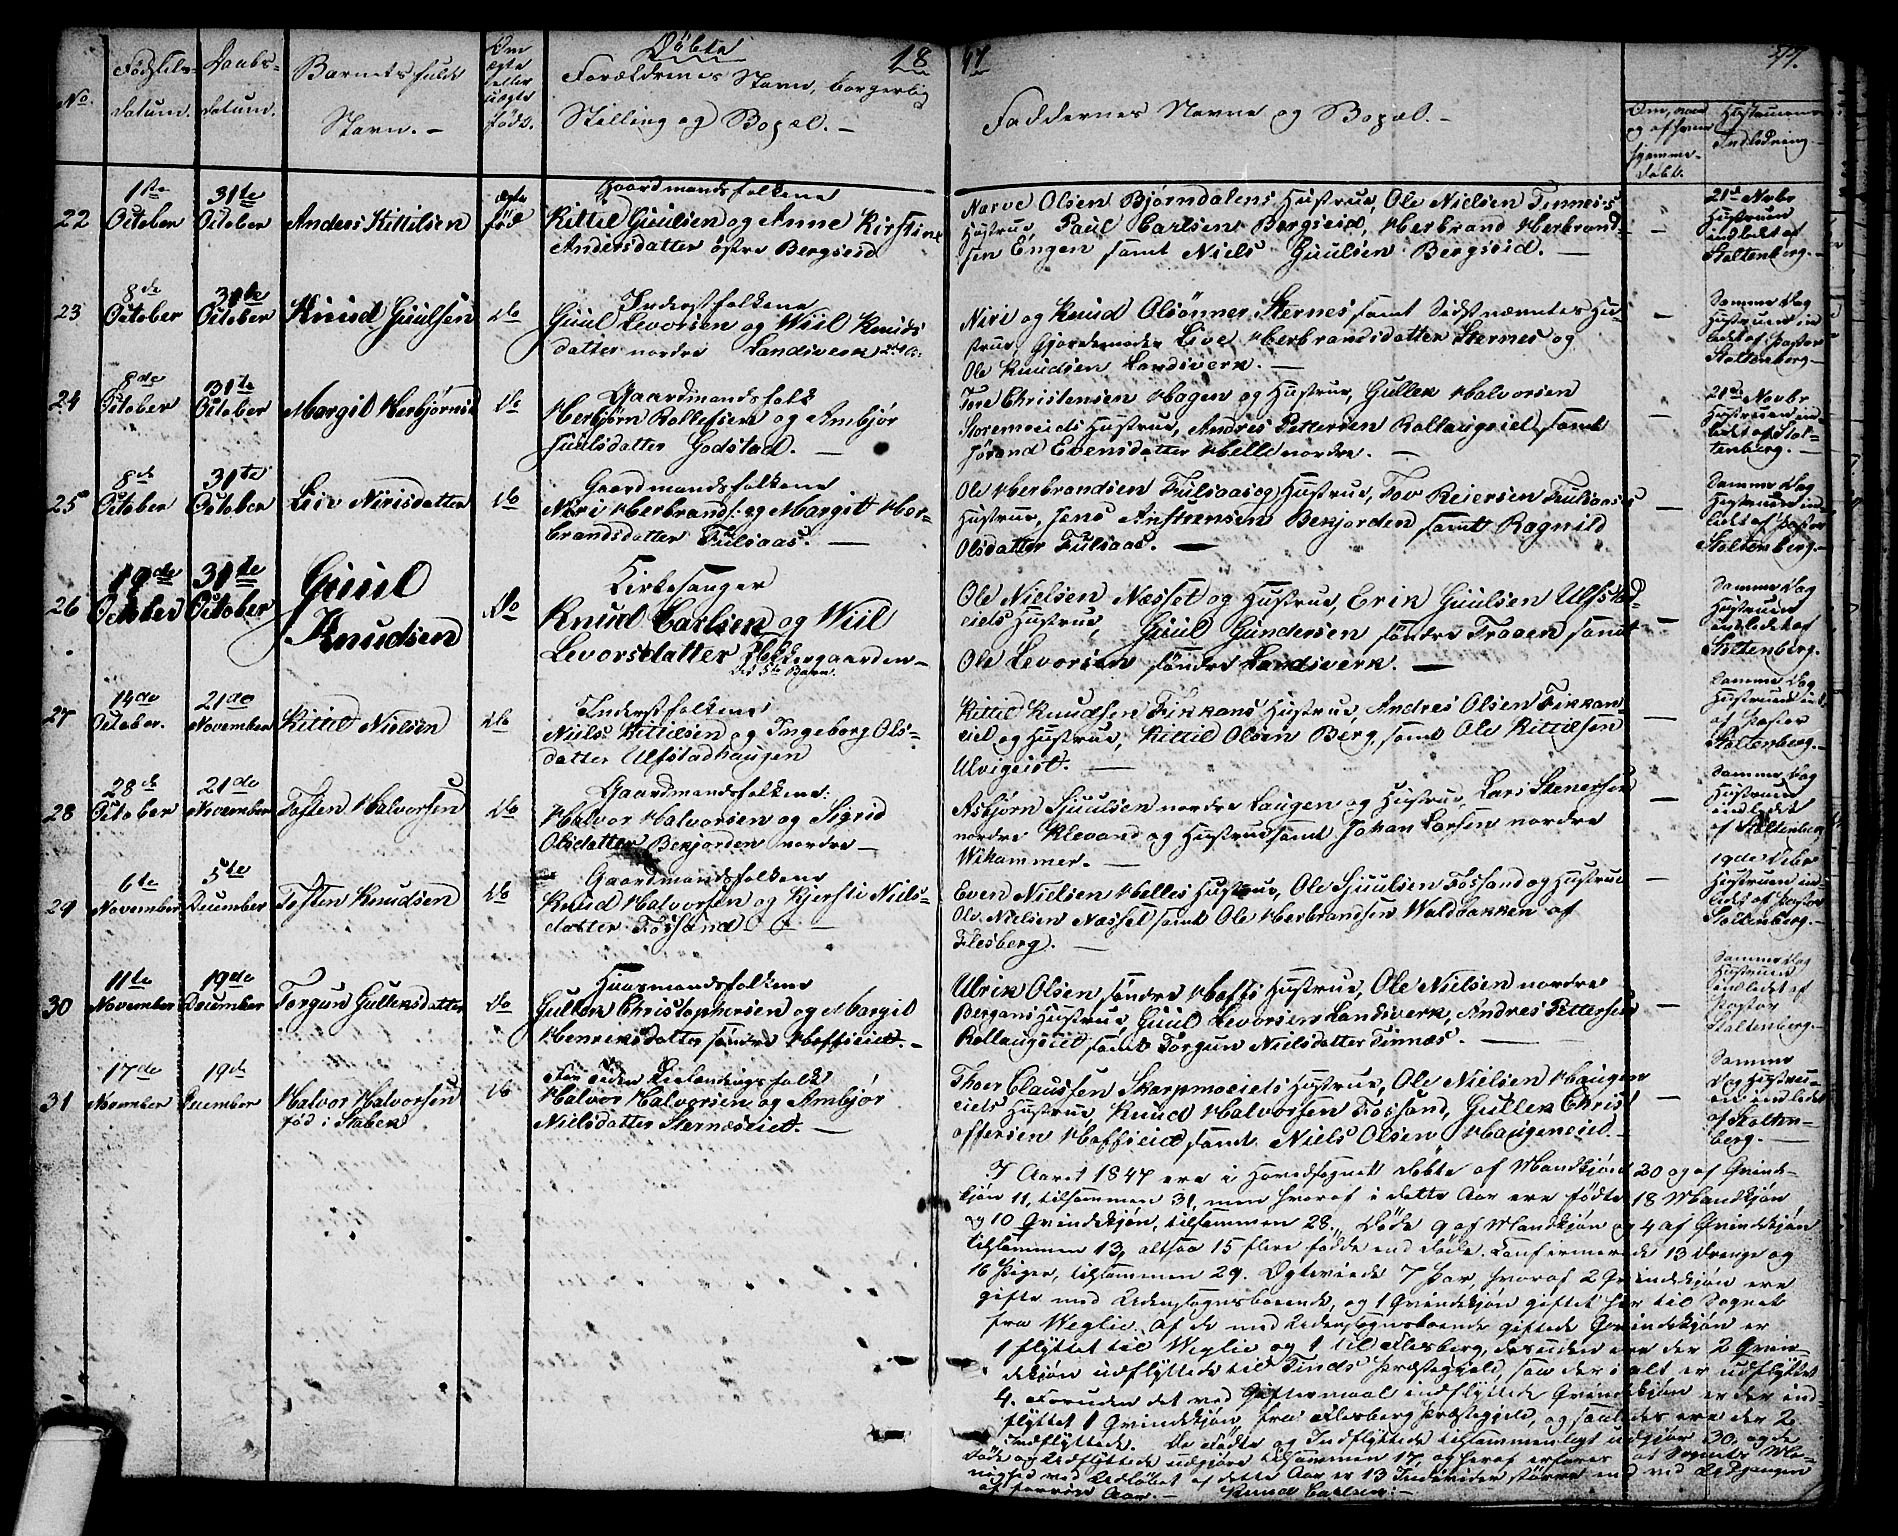 Döbte 18 47 77.
No.
Födsels-
datum.
Daabs-
datum.
Barnets fulde
Navn. -
Om
ægte
eller
uægte
födt.
Forældrenes Navn, borgerlig
Stilling og Bopæl. -
Faddernes Navne og Bopæl. -
Om, naar
og af hvem
hjemme-
döbt.
Hustruens
Indledning. -
22
1ste
October
31te
October
Anders Kittilsen
ægte
föd
Gaardmandsfolkene
Kittil Guulsen og Anne Kirstine
Andersdatter östre Bergseid
Narve Olsen Bjørndalens Hustrue, Ole Nielsen Tinnæs's
Hustrue, Paul Carlsen Bergseid, Herbrand Herbrand-
sen Engen samt Niels Guulsen Bergseid. -
21de Novbr
Hustruen
indledt af
Stoltenberg. -
23
8de
October
31te
October
Knud Guulsen
do
Inderstfolkene
Guul Levorsen og Wiil Knuds
datter nordre Landsverk
Niri og Knud Olsönner Sternes samt Sidstnævntes Hu-
strue, Gjordemoder Live Herbrandsdatter Sternes og
Ole Knudsen Landsverk. -
Samme Dag
Hustruen in
ledet af Pastor
Stoltenberg. -
24
8de
October
31te
October
Margit Herbjörnsd
do
Gaardmandsfolk
Herbjørn Rollefsen og Ambjør
Juulsdatter Godstad. -
Tore Christensen Hagen og Hustrue, Gullek Halvorsen
Storemoeiets Hustrue, Andres Pettersen Rollaugseiet, samt
Jörand Evensdatter Helle nordre. -
21de Novbr
Hustruen in-
ledet af Stol-
tenberg. -
25
8de
October
31te
October
Liv Nirisdatter
do
Gaardmandsfolkene
Niri Herbrands: og Margit Her-
brandsdatter Fulsaas. -
Ole Herbrandsen Fulsaas og Hustrue, Tov Reiersen Fulsaas's
Hustrue, Jens Anstensen Bekjorden samt Ragnild
Olsdatter Fulsaas. -
Samme Dag
Hustruen in-
ledet af Pastor
Stoltenberg. -
26
19de
October
31te
October
Guul
Knudsen
Do
Kirkesanger
Knud Carlsen og Wiil
Levorsdatter Heddergaarden -
Det 5te Barn.
Ole Nielsen Næsset og Hustrue, Erik Guulsen Ulfstad-
eiets Hustrue, Guul Gundersen söndre Traaen samt
Ole Levorsen söndre Landsverk. -
Samme Dag
Hustruen
indledet af
Stoltenberg.
27
14de
October.
21de
November
Kittil Nielsen
do
Inderstfolkene
Niels Kittilsen og Ingeborg Ols-
datter Ulfstadhaugen
Kittil Knudsen Fikkans Hustrue, Andres Olsen Fikkan
eiet og Hustrue, Kittil Olsen Berg, samt Ole Kittilsen
Ulvigeiet. -
Samme Dag
Hustruen indl
af Pastor
Stoltenberg. -
28
28de
October
21de
November
Tosten Halvorsen
do
Gaardmandsfolkene:
Halvor Halvorsen og Sigrid
Olsdatter Bekjorden nordre -
Asbjørn Sjuulsen nordre Laugen og Hustrue, Lars Stenersen
nordre Klevand og Hustrue samt Johan Larsen nordre
Wikammer. -
Samme Dag
Hustruen
indledet
af Stoltenberg
29
6te
November
5te
December
Tosten Knudsen
do
Gaardmandsfolkene
Knud Halvorsen og Kjersti Niels-
datter Fossand -
Even Nielsen Helles Hustrue, Ole Sjuulsen Fossand og Hustrue
Ole Nielsen Næsset samt Ole Herbrandsen Waldbakken af
Flesberg. -
19de Debr
Hustruen in-
ledet af Pastor
Stoltenberg. -
30
11te
November
19de
December
Torgun Gulleksdatter
do
Huusmandsfolkene
Gullek Christophersen og Margit
Henriksdatter söndre Hoffseiet. -
Ulrik Olsen söndre Hoffs Hustrue, Ole Nielsen nordre
Bergans Hustrue, Guul Levorsen Landsverk, Andres Pettersen
Rollaugseiet samt Torgun Nielsdatter Tinnæs. -
Samme Dag
Hustruen
indledet af
Pastor
Stoltenberg. -
31
17de
November
19de
December
Halvor Halvorsen
föd i Staben
do
Halvor Halvorsen og Ambjør
Nielsdatter Sternæseiet. -
Thoer Claussen Skarpmoeiets Hustrue, Ole Nielsen Haugen
eiets Hustrue, Knud Halvorsen Fossand, Gullek Christ
offersen Hoffseiet samt Niels Olsen Haugeneiet. -
Samme
Dag Hustru-
en indledet
af Stolten-
berg. -
I Aaret 1847 ere i Hovedsognet döbte af Mandkjön 20 og af Qvinde-
kjön 11, tilsammen 31, men hvoraf i dette Aar ere födte 18 Mandkjön
og 10 Qvindekjön, tilsammen 28. Döde 9 af Mandkjön og 4 af Qvindekjön
tilsammen 13, altsaa 15 flere födde end döde. Confirmerede 13 Drenge og
16 Piger, tilsammen 29. Ægteviede 7 Par, hvoraf 2 Qvindekjön ere
gifte med Udensognsboende, og 1 Qvindekjön giftet her til Sognet
fra Weglie. Af de med Udensognsboende giftede Qvindekjön er
1 flyttet til Weglie og 1 til Flesberg, desuden ere der 2 Qvin-
dekjön udflyttede til Tinds Præstegjeld, saa der i alt er udflyttet
4. Foruden det ved Giftermaal indflyttede Qvindekjön er der ind
flyttet 1 Qvindekjön, fra Flesberg Præstegjeld, og saaledes ere der 2
Indflyttede. De Födte og Indflyttede tilsammenlagt udgjør 30, og de
Döde og Udflyttede udgjøre tilsammen 17, og heraf erfares at Sognets Me-
nighed ved Udlöbet af dette Aar er 13 Individer större end ved Udgangen
af forrige Aar. - Knud Carlsen: -